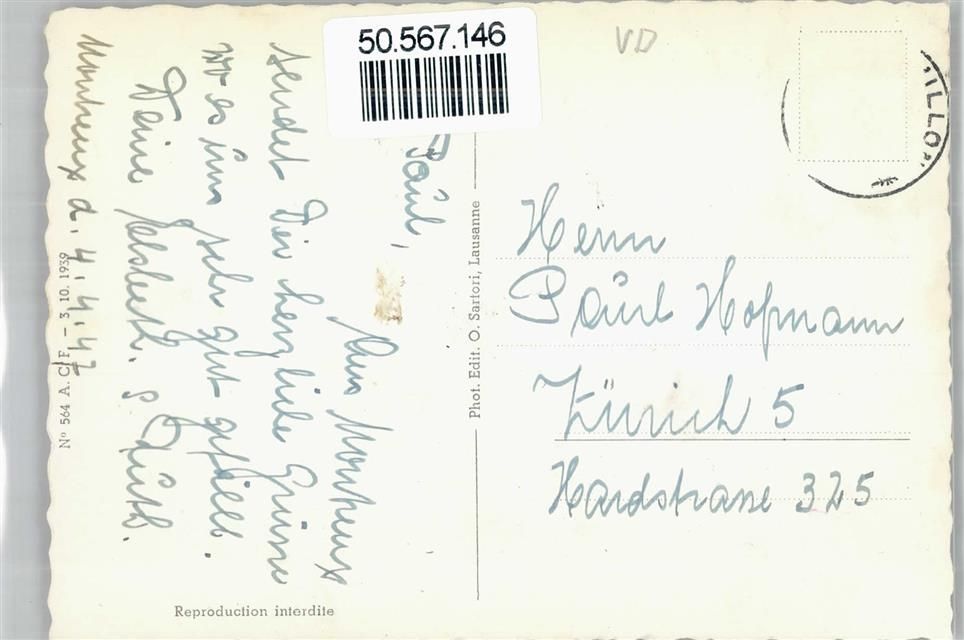 50.567.146
VD
ILLON
Montreux d. 4.4.47
Paul,
Aus Montreux
sendet Dir herzliche Grüsse
wo es uns sehr gut gefällt.
Deine Elsbeth. & Ruth.
Herrn
Paul Hofmann
Zürich 5
Hardstrasse 325
Phot. Edit. O. Sartori, Lausanne
Nº 564 A. C. F. – 3. 10. 1939
Reproduction interdite